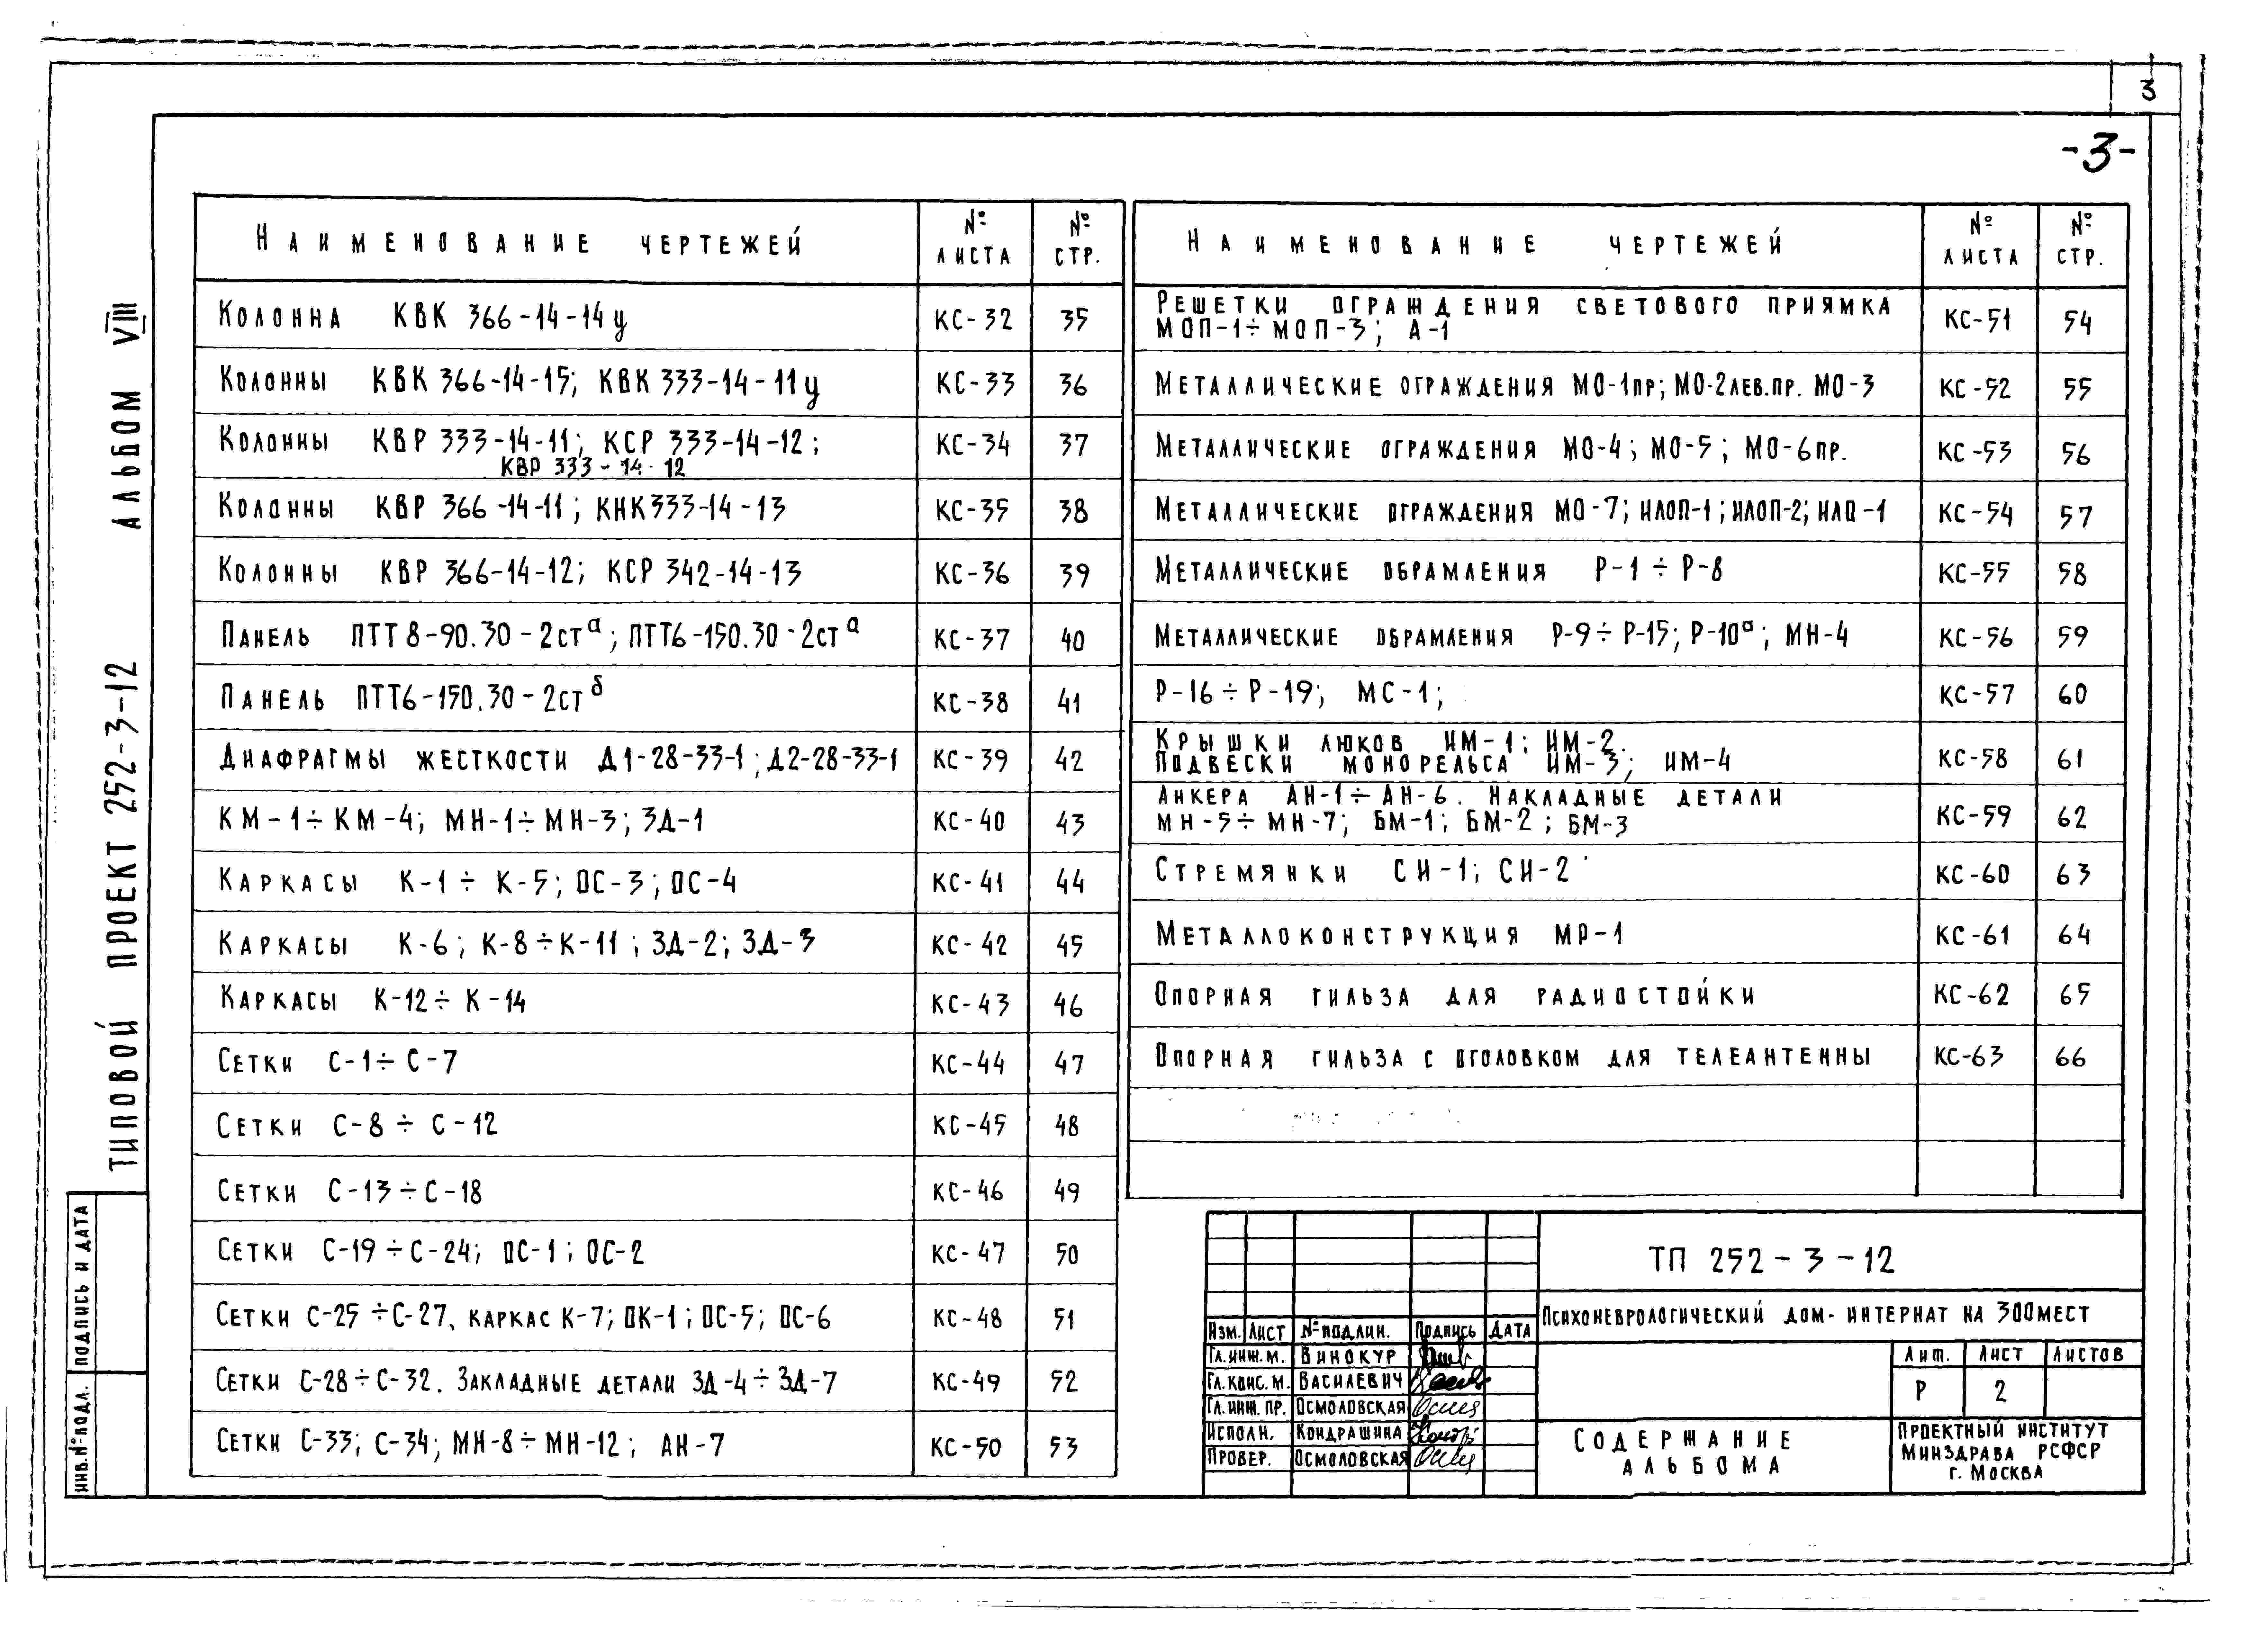 3
-3-
ТИПОВОЙ ПРОЕКТ 252-3-12 АЛЬБОМ VIII
ПОДПИСЬ И ДАТА
ИНВ.№ПОДЛ.
НАИМЕНОВАНИЕ ЧЕРТЕЖЕЙ № ЛИСТА № СТР.
КОЛОННА КВК 366-14-14у КС-32 35
КОЛОННЫ КВК 366-14-15; КВК 333-14-11у КС-33 36
КОЛОННЫ КВР 333-14-11; КСР 333-14-12; КС-34 37
КВР 333-14-12
КОЛОННЫ КВР 366-14-11; КНК333-14-13 КС-35 38
КОЛОННЫ КВР 366-14-12; КСР 342-14-13 КС-36 39
ПАНЕЛЬ ПТТ8-90.30-2стᵃ; ПТТ6-150.30-2стᵃ КС-37 40
ПАНЕЛЬ ПТТ6-150.30-2ст б КС-38 41
ДИАФРАГМЫ ЖЕСТКОСТИ Д1-28-33-1; Д2-28-33-1 КС-39 42
КМ-1÷КМ-4; МН-1÷МН-3; ЗД-1 КС-40 43
КАРКАСЫ К-1÷К-5; ОС-3; ОС-4 КС-41 44
КАРКАСЫ К-6; К-8÷К-11; ЗД-2; ЗД-3 КС-42 45
КАРКАСЫ К-12÷К-14 КС-43 46
СЕТКИ С-1÷С-7 КС-44 47
СЕТКИ С-8÷С-12 КС-45 48
СЕТКИ С-13÷С-18 КС-46 49
СЕТКИ С-19÷С-24; ОС-1; ОС-2 КС-47 50
СЕТКИ С-25÷С-27, КАРКАС К-7; ОК-1; ОС-5; ОС-6 КС-48 51
СЕТКИ С-28÷С-32. ЗАКЛАДНЫЕ ДЕТАЛИ ЗД-4÷ЗД-7 КС-49 52
СЕТКИ С-33; С-34; МН-8÷МН-12; АН-7 КС-50 53
НАИМЕНОВАНИЕ ЧЕРТЕЖЕЙ № ЛИСТА № СТР.
РЕШЕТКИ ОГРАЖДЕНИЯ СВЕТОВОГО ПРИЯМКА
МОП-1÷МОП-3; А-1 КС-51 54
МЕТАЛЛИЧЕСКИЕ ОГРАЖДЕНИЯ МО-1ПР; МО-2ЛЕВ.ПР. МО-3 КС-52 55
МЕТАЛЛИЧЕСКИЕ ОГРАЖДЕНИЯ МО-4; МО-5; МО-6ПР. КС-53 56
МЕТАЛЛИЧЕСКИЕ ОГРАЖДЕНИЯ МО-7; ИЛОП-1; ИЛОП-2; ИЛО-1 КС-54 57
МЕТАЛЛИЧЕСКИЕ ОБРАМЛЕНИЯ Р-1÷Р-8 КС-55 58
МЕТАЛЛИЧЕСКИЕ ОБРАМЛЕНИЯ Р-9÷Р-15; Р-10ᵃ; МН-4 КС-56 59
Р-16÷Р-19; МС-1; КС-57 60
КРЫШКИ ЛЮКОВ ИМ-1; ИМ-2.
ПОДВЕСКИ МОНОРЕЛЬСА ИМ-3; ИМ-4 КС-58 61
АНКЕРА АН-1÷АН-6. НАКЛАДНЫЕ ДЕТАЛИ
МН-5÷МН-7; БМ-1; БМ-2; БМ-3 КС-59 62
СТРЕМЯНКИ СИ-1; СИ-2 КС-60 63
МЕТАЛЛОКОНСТРУКЦИЯ МР-1 КС-61 64
ОПОРНАЯ ГИЛЬЗА ДЛЯ РАДИОСТОЙКИ КС-62 65
ОПОРНАЯ ГИЛЬЗА С ОГОЛОВКОМ ДЛЯ ТЕЛЕАНТЕННЫ КС-63 66
ТП 252-3-12
ПСИХОНЕВРОЛОГИЧЕСКИЙ ДОМ-ИНТЕРНАТ НА 300МЕСТ
ИЗМ. ЛИСТ №ПОДЛИН. ПОДПИСЬ ДАТА
ГЛ.ИНЖ.М. ВИНОКУР
ГЛ.КОНС.М. ВАСИЛЕВИЧ
ГЛ.ИНЖ.ПР. ОСМОЛОВСКАЯ
ИСПОЛН. КОНДРАШИНА
ПРОВЕР. ОСМОЛОВСКАЯ
ЛИТ. ЛИСТ ЛИСТОВ
Р 2
СОДЕРЖАНИЕ
АЛЬБОМА
ПРОЕКТНЫЙ ИНСТИТУТ
МИНЗДРАВА РСФСР
Г. МОСКВА